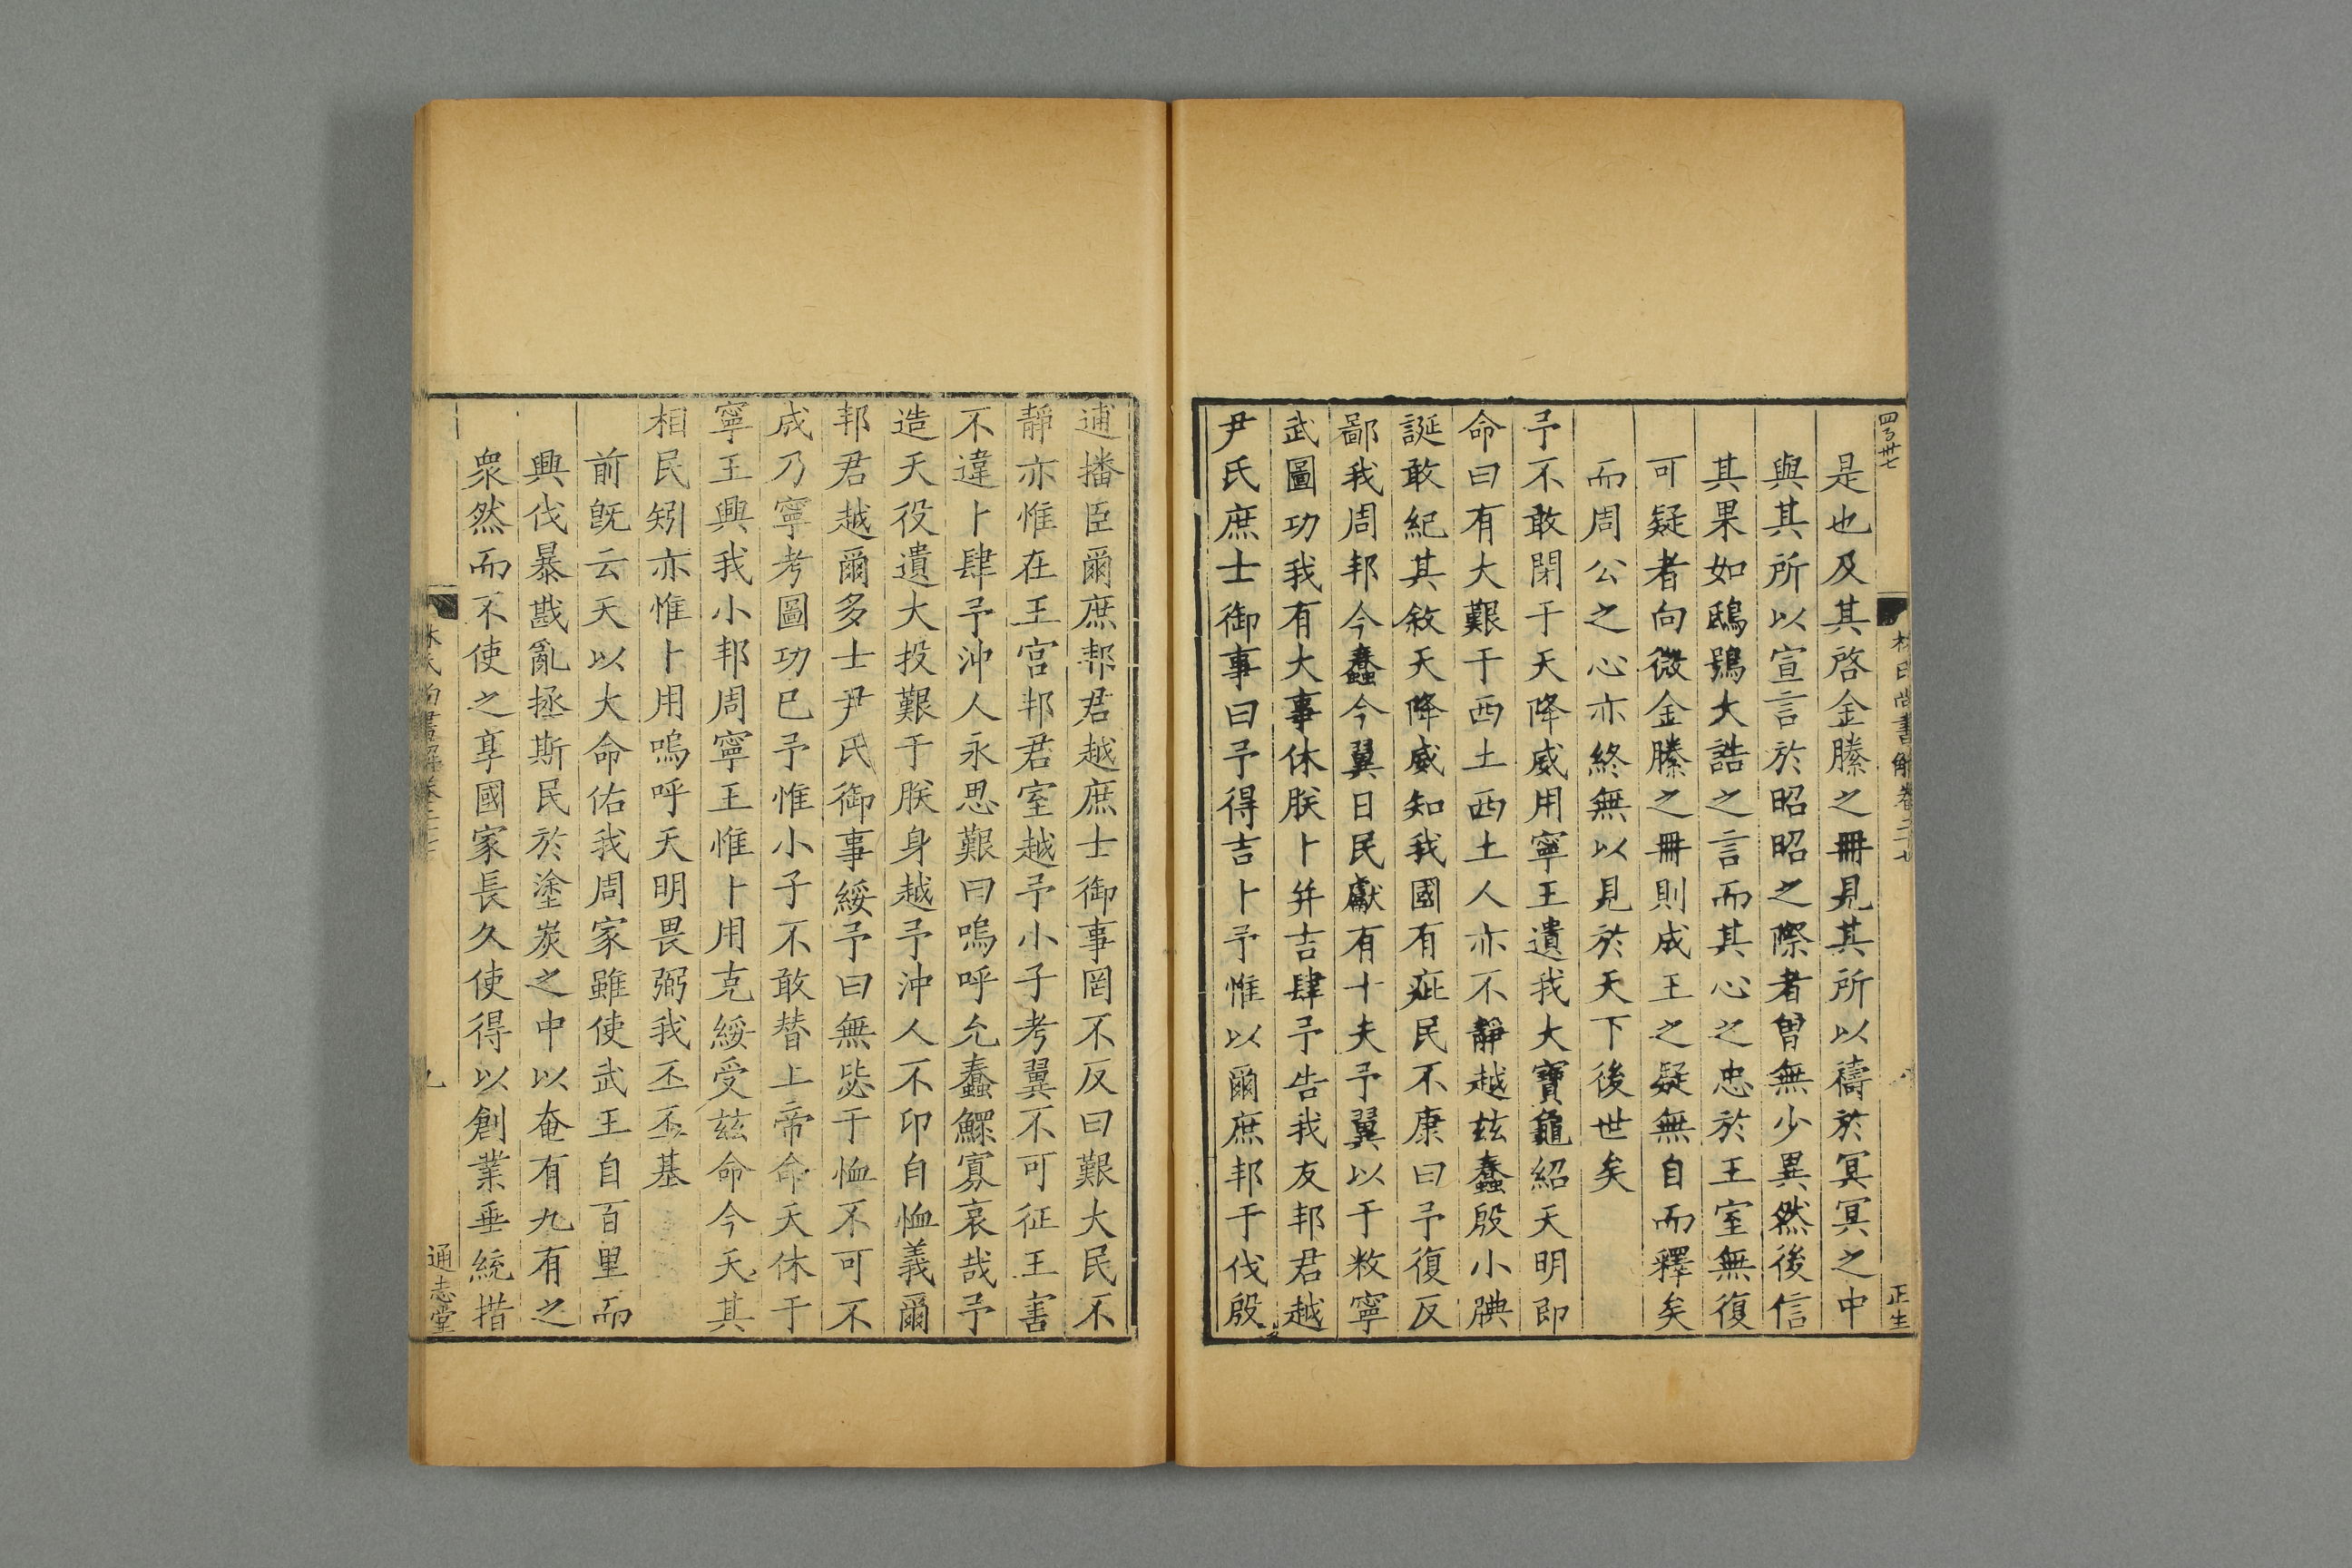 四百卅七
林氏尚書解卷二十七
正生
是也及其啓金縢之冊見其所以禱於冥冥之中
與其所以宣言於昭昭之際者曾無少異然後信
其果如鴟鴞大誥之言而其心之忠於王室無復
可疑者向微金縢之冊則成王之疑無自而釋矣
而周公之心亦終無以見於天下後世矣
予不敢閉于天降威用寧王遺我大寶龜紹天明即
命曰有大艱于西土西土人亦不靜越茲蠢殷小腆
誕敢紀其敘天降威知我國有疵民不康曰予復反
鄙我周邦今蠢今翼日民獻有十夫予翼以于敉寧
武圖功我有大事休朕卜并吉肆予告我友邦君越
尹氏庶士御事曰予得吉卜予惟以爾庶邦于伐殷
逋播臣爾庶邦君越庶士御事罔不反曰艱大民不
靜亦惟在王宮邦君室越予小子考翼不可征王害
不違卜肆予沖人永思艱曰嗚呼允蠢鰥寡哀哉予
造天役遺大投艱于朕身越予沖人不卬自恤義爾
邦君越爾多士尹氏御事綏予曰無毖于恤不可不
成乃寧考圖功已予惟小子不敢替上帝命天休于
寧王興我小邦周寧王惟卜用克綏受茲命今天其
相民矧亦惟卜用嗚呼天明畏弼我丕丕基
前旣云天以大命佑我周家雖使武王自百里而
興伐暴戡亂拯斯民於塗炭之中以奄有九有之
衆然而不使之享國家長久使得以創業垂統措
林氏尚書解卷二十七
九
通志堂